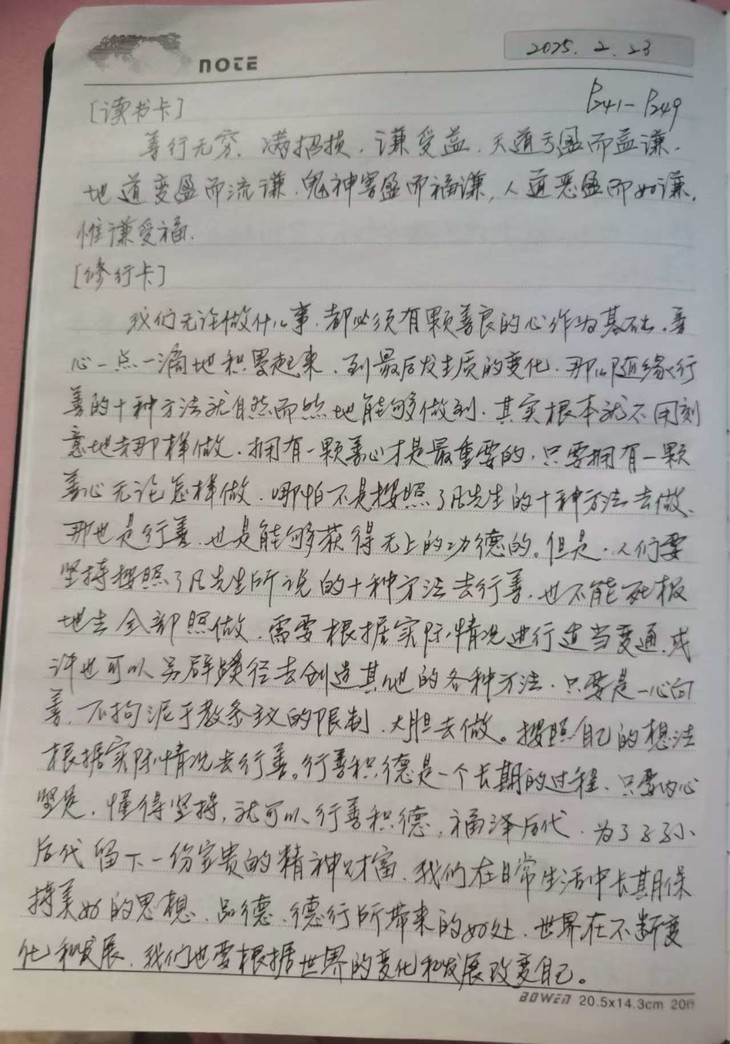 NOTE
2025.2.23
[读书卡] P241-P249
善行无穷，满招损，谦受益，天道亏盈而益谦，
地道变盈而流谦，鬼神害盈而福谦，人道恶盈而好谦，
惟谦受福。
[修行卡]
我们无论做什么事，都必须有颗善良的心作为基础，善
心一点一滴地积累起来，到最后发生质的变化，那么随缘行
善的十种方法就自然而然地能够做到，其实根本就不用刻
意地去那样做，拥有一颗善心才是最重要的，只要拥有一颗
善心无论怎样做，哪怕不是按照了凡先生的十种方法去做，
那也是行善，也是能够获得无上的功德的。但是，人们要
坚持按照了凡先生所说的十种方法去行善，也不能死板
地去全部照做，需要根据实际情况进行适当变通，或
许也可以另辟蹊径去创造其他的各种方法，只要是一心向
善，不拘泥于教条主义的限制，大胆去做。按照自己的想法
根据实际情况去行善。行善积德是一个长期的过程，只要内心
坚定，懂得坚持，就可以行善积德，福泽后代，为了子子孙
后代留下一份宝贵的精神财富，我们在日常生活中长期保
持美好的思想、品德、德行所带来的好处，世界在不断变
化和发展，我们也要根据世界的变化和发展改变自己。
BOWEN 20.5x14.3cm